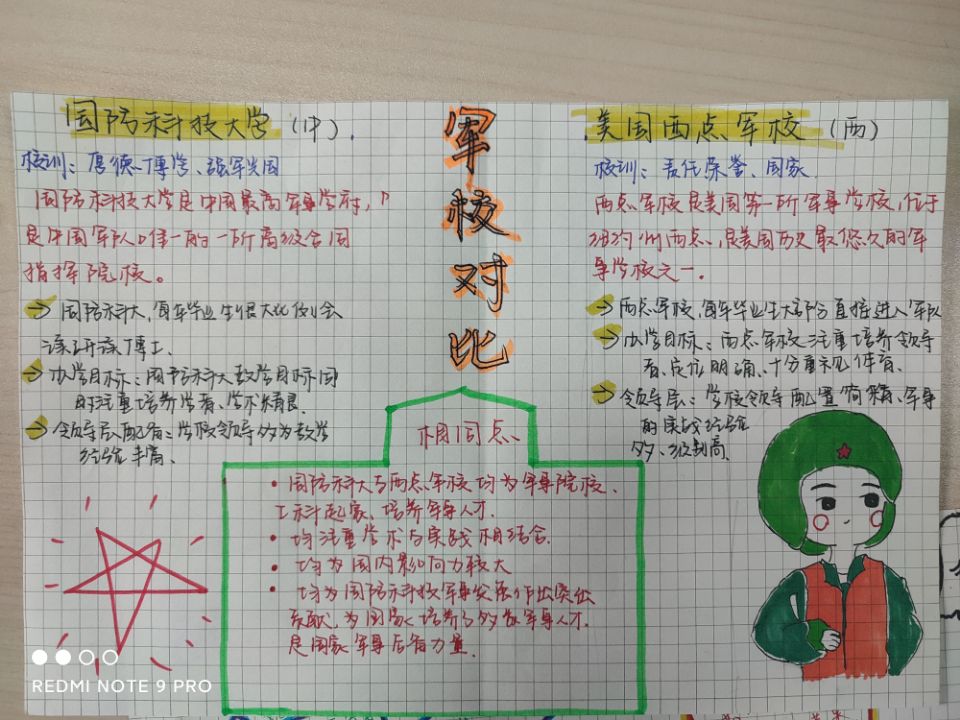 国防科技大学（中）.
校训：厚德博学、强军兴国
国防科技大学是中国最高军事学府，
是中国军队唯一的一所高级合同
指挥院校。
→ 国防科大，每年毕业生很大比例会
读研读博士.
→ 办学目标：国防科大教学目标同
时注重培养学者、学术精良.
→ 领导层配备：学校领导多为教学
经验丰高.
军校对比
美国西点军校（西）
校训：责任荣誉、国家
西点军校是美国第一所军事学校，位于
纽约州西点，是美国历史最悠久的军
事学校之一.
→ 西点军校，每年毕业生大部分直接进入军队
→ 办学目标：西点军校注重培养领导
者、定位明确、十分重视体育.
→ 领导层：学校领导配置简精、军事
的实战经验
多、级别高.
相同点、
• 国防科大与西点军校均为军事院校.
工科起家、培养军事人才.
• 均注重学术与实战相结合.
• 均为国内影响力较大
• 均为国防科技军事发展作出突出
贡献，为国家培养了多名军事人才.
是国家军事后备力量.
REDMI NOTE 9 PRO